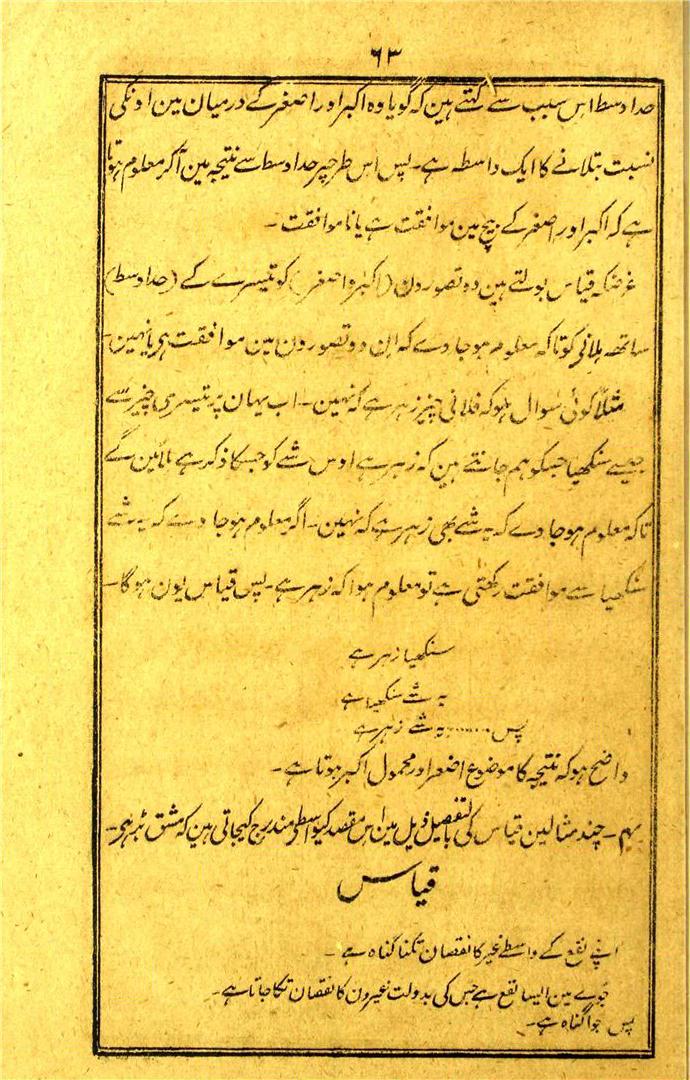 ٦٣
حد اوسط اس سبب سے کہتے ہین کہ گویا وہ اکبر اور اصغر کے درمیان مین اونکی
نسبت بتلانے کا ایک واسطہ ہے۔ پس اس طرحپر حد اوسط سے نتیجہ مین آکر معلوم ہوتا
ہے کہ اکبر اور اصغر کے بیچ مین موافقت ہے یا ناموافقت۔
غرضکہ قیاس بولتے ہین دو تصورون (اکبر و اصغر) کو تیسرے کے (حد اوسط)
ساتھہ ملانی کو تاکہ معلوم ہوجاوے کہ ان دو تصورون مین موافقت ہی یا نہین۔
مثلاً کوئی سوال ہو کہ فلانی چیز زہر ہے کہ نہین۔ اب یہان پر تیسری چیز سے
جیسے سنکھیا جسکو ہم جانتے ہین کہ زہر ہے اوس شے کو جسکا ذکر ہے ملائین گے
تاکہ معلوم ہوجاوے کہ یہ شے بھی زہر ہے کہ نہین۔ اگر معلوم ہوجاوے کہ یہ شے
سنکھیا سے موافقت رکھتی ہے تو معلوم ہوا کہ زہر ہے۔ پس قیاس یون ہوگا۔
سنکھیا زہر ہے
یہ شے سنکھیا ہے
پس ....... یہ شے زہر ہے
واضح ہو کہ نتیجہ کا موضوع اصغر اور محمول اکبر ہوتا ہے۔
چند مثالین قیاس کی بالتفصیل ذیل مین اس مقصد کیواسطی مندرج کیجاتی ہین کہ مشق بڑہی۔
قیاس
اپنے نفع کے واسطے غیر کا نقصان تکنا گناہ ہے۔
جوے مین ایسا نفع ہے جس کی بدولت غیرون کا نقصان تکا جاتا ہے۔
پس جوا گناہ ہے۔